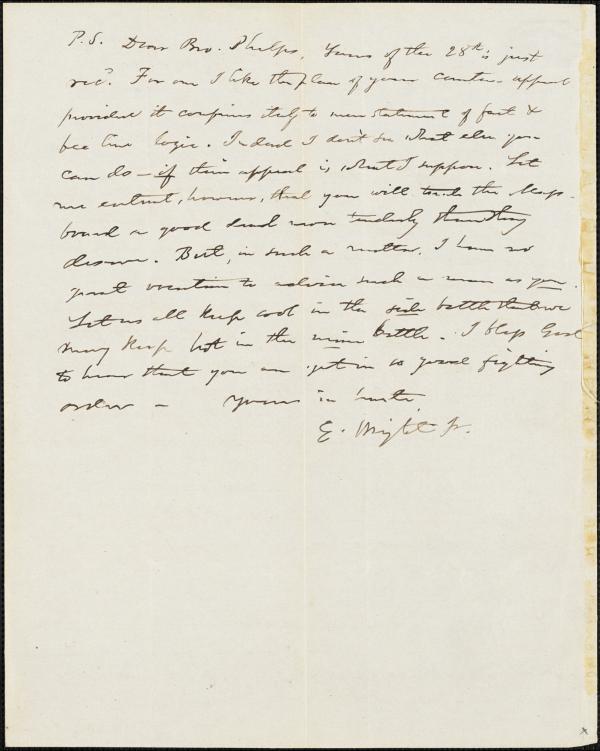 P.S. Dear Bro. Phelps, Yours of the 28th is just
rec'd. For one I like the plan of your counter appeal
provided it confines itself to mere statement of fact &
bee line logic. Indeed I don't see what else you
can do — if their appeal is what I suppose. Let
me entreat, however, that you will the
board a good deal more tenderly than they
deserve. But, in such a matter, I have no
great vocation to advise such a man as you.
Let us all keep cool in the side battle that we
may keep hot in the main battle. I bless God
to hear that you are yet in so good fighting
order — Yours in haste
E. Wright Jr.